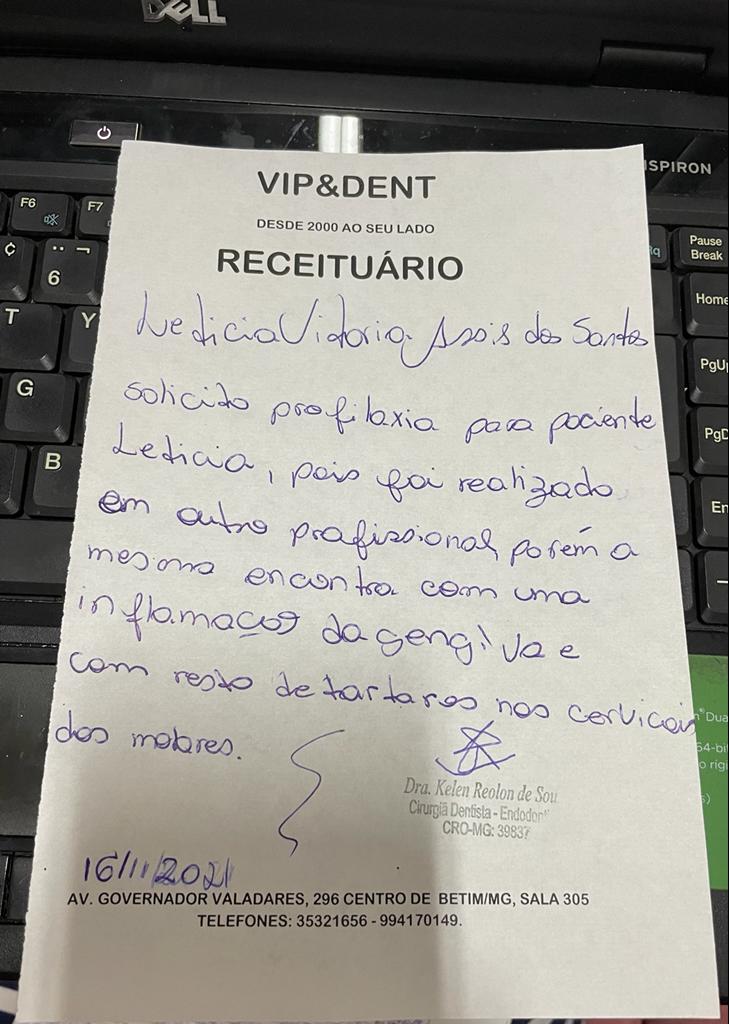 DELL
INSPIRON
F6
F7
6
T
Y
G
B
Pause
Break
Home
PgU
PgD
En
VIP&DENT
DESDE 2000 AO SEU LADO
RECEITUÁRIO
Leticia Vitoria Assis dos Santos
solicito profilaxia para paciente
Leticia, pois foi realizado
em outro profissional, porém a
mesma encontra com uma
inflamação da gengiva e
com resto de tartaros nos cervicais
dos molares.
Dra. Kelen Reolon de Sou
Cirurgiã Dentista - Endodont
CRO-MG: 39837
16/11/2021
AV. GOVERNADOR VALADARES, 296 CENTRO DE BETIM/MG, SALA 305
TELEFONES: 35321656 - 994170149.
Dua
64-bi
o rigi